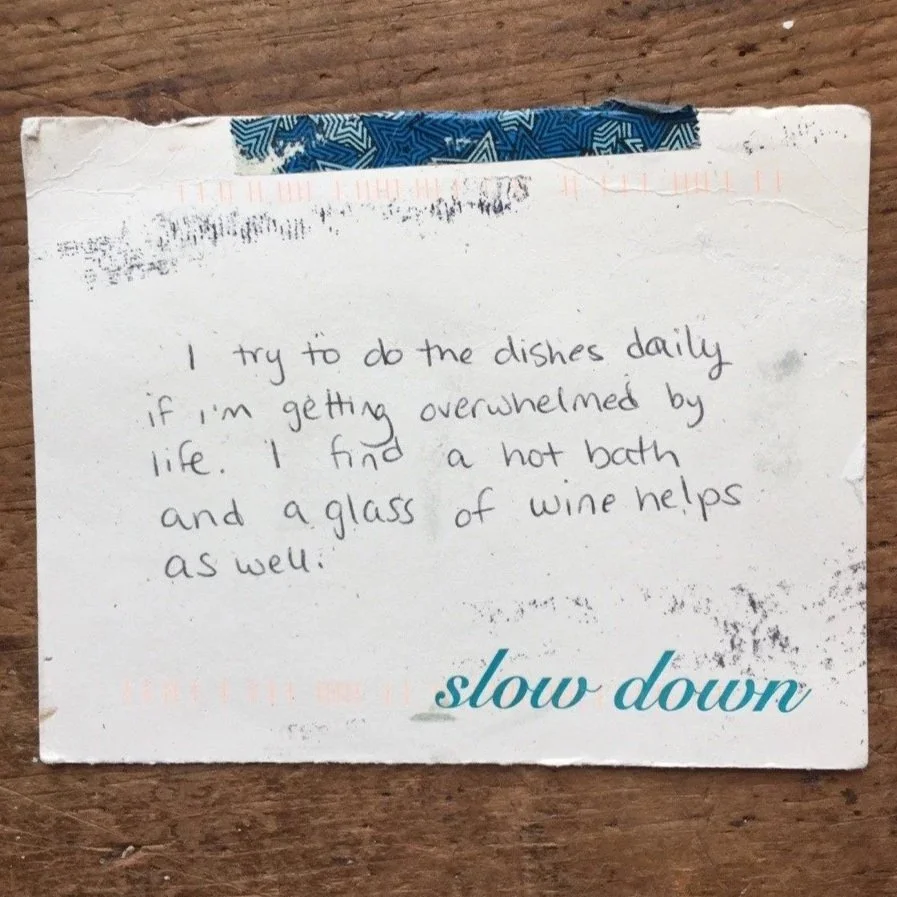 I try to do the dishes daily
if i'm getting overwhelmed by
life. I find a hot bath
and a glass of wine helps
as well.
slow down